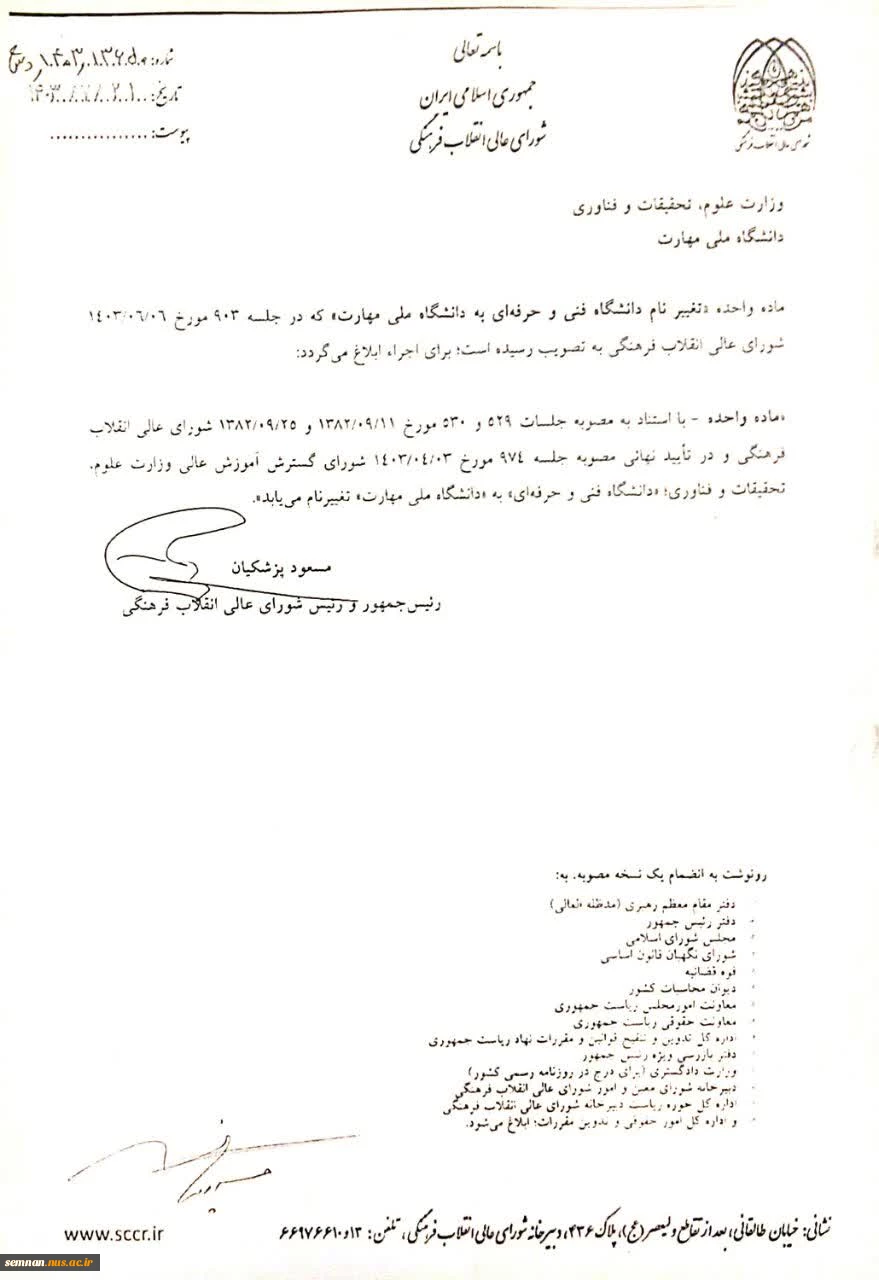 باسمه تعالی
جمهوری اسلامی ایران
شورای عالی انقلاب فرهنگی
شماره:
تاریخ:
پیوست: ................
شورای عالی انقلاب فرهنگی
وزارت علوم، تحقیقات و فناوری
دانشگاه ملی مهارت
ماده واحده «تغییر نام دانشگاه فنی و حرفه‌ای به دانشگاه ملی مهارت» که در جلسه ۹۰۳ مورخ ۱۴۰۳/۰۶/۰۶
شورای عالی انقلاب فرهنگی به تصویب رسیده است؛ برای اجراء ابلاغ می‌گردد:
«ماده واحده - با استناد به مصوبه جلسات ۵۲۹ و ۵۳۰ مورخ ۱۳۸۲/۰۹/۱۱ و ۱۳۸۲/۰۹/۲۵ شورای عالی انقلاب
فرهنگی و در تأیید نهائی مصوبه جلسه ۹۷۴ مورخ ۱۴۰۳/۰۴/۰۳ شورای گسترش آموزش عالی وزارت علوم،
تحقیقات و فناوری؛ «دانشگاه فنی و حرفه‌ای» به «دانشگاه ملی مهارت» تغییرنام می‌یابد».
مسعود پزشکیان
رئیس‌جمهور و رئیس شورای عالی انقلاب فرهنگی
رونوشت به انضمام یک نسخه مصوبه، به:
دفتر مقام معظم رهبری (مدظله العالی)
دفتر رئیس جمهور
مجلس شورای اسلامی
شورای نگهبان قانون اساسی
قوه قضائیه
دیوان محاسبات کشور
معاونت امورمجلس ریاست جمهوری
معاونت حقوقی ریاست جمهوری
اداره کل تدوین و تنقیح قوانین و مقررات نهاد ریاست جمهوری
دفتر بازرسی ویژه رئیس جمهور
وزارت دادگستری (برای درج در روزنامه رسمی کشور)
دبیرخانه شورای معین و امور شورای عالی انقلاب فرهنگی
اداره کل حوزه ریاست دبیرخانه شورای عالی انقلاب فرهنگی
و اداره کل امور حقوقی و تدوین مقررات؛ ابلاغ می‌شود.
نشانی: خیابان طالقانی، بعد از تقاطع ولیعصر (عج)، پلاک ۴۳۶، دبیرخانه شورای عالی انقلاب فرهنگی، تلفن: ۱۳و۶۶۹۷۶۶۱۰
www.sccr.ir
semnan.nus.ac.ir